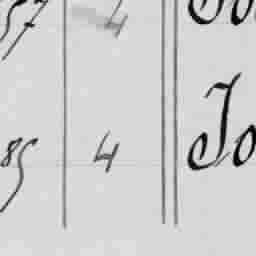 57 4
85 4 Jo